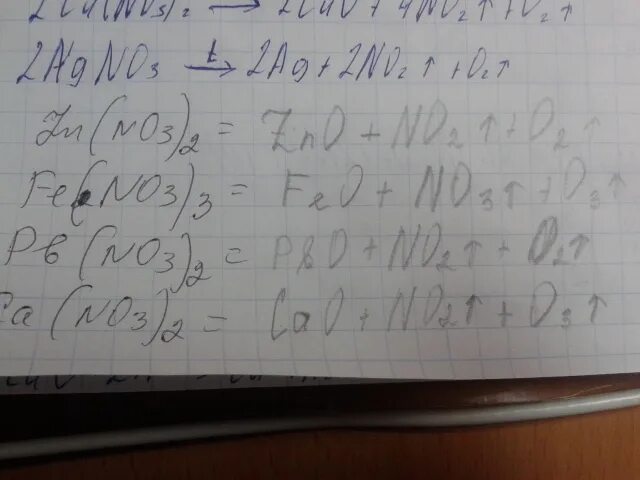 2Cu(NO3)2 → 2CuO + 4NO2↑ + O2↑
2AgNO3 t→ 2Ag + 2NO2↑ + O2↑
Zn(NO3)2 = ZnO + NO2↑ + O2↑
Fe(NO3)3 = FeO + NO3↑ + O3↑
Pb(NO3)2 = PbO + NO2↑ + O2↑
Ca(NO3)2 = CaO + NO2↑ + O3↑